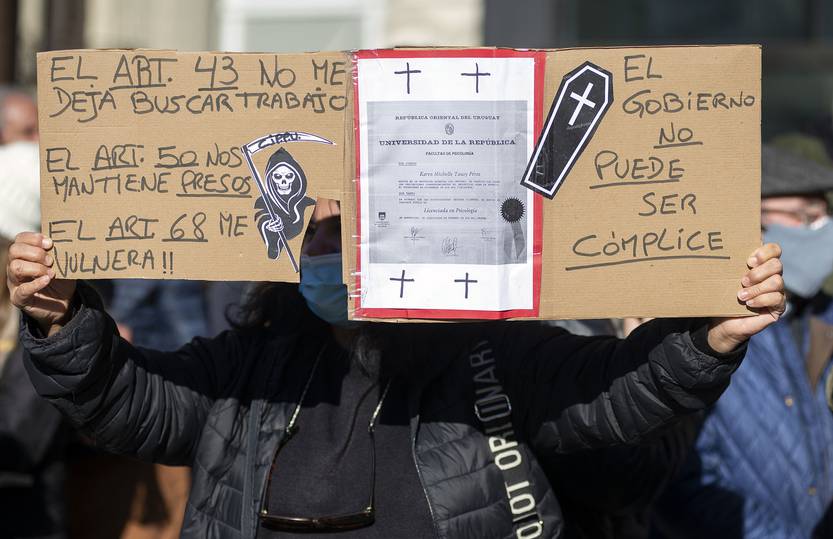 EL ART. 43 NO ME
DEJA BUSCAR TRABAJO
EL ART. 50 NOS
MANTIENE PRESOS
EL ART. 68 ME
VULNERA!!
C.J.P.P.U.
REPÚBLICA ORIENTAL DEL URUGUAY
UNIVERSIDAD DE LA REPÚBLICA
FACULTAD DE PSICOLOGÍA
Karen Michelle Tausy Pérez
Licenciada en Psicología
EL
GOBIERNO
NO
PUEDE
SER
CÓMPLICE